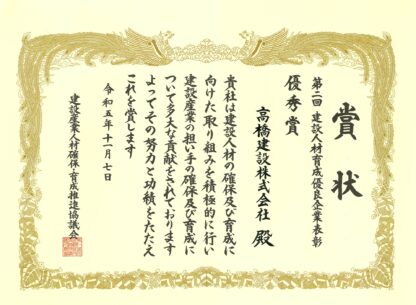 賞状
第二回 建設人材育成優良企業表彰
優秀賞
高橋建設株式会社 殿
貴社は建設人材の確保及び育成に
向けた取り組みを積極的に行い
建設産業の担い手の確保及び育成に
ついて多大な貢献をされております
よってその努力と功績をたたえ
これを賞します
令和五年十一月七日
建設産業人材確保・育成推進協議会